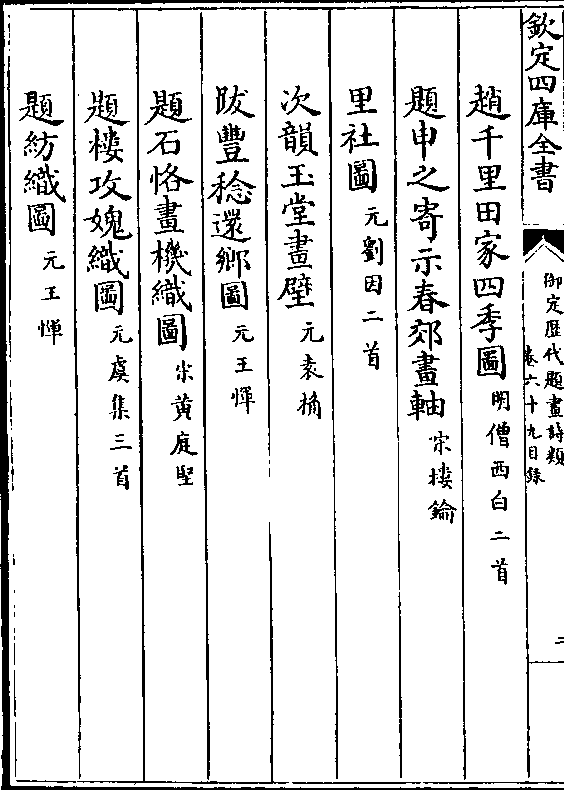 欽定四庫全書
御定歴代題畫詩類
卷六十九目錄
二
趙千里田家四季圖 明僧西白二首
題申之寄示春郊畫軸 宋樓鑰
里社圖 元劉因二首
次韻玉堂畫壁 元袁桷
跋豐稔還鄉圖 元王惲
題石恪畫機織圖 宋黄庭堅
題樓攻媿織圖 元虞集三首
題紡織圖 元王惲